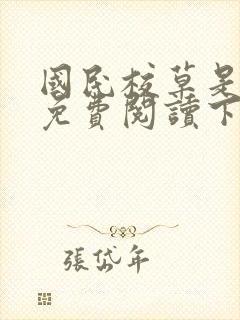 國民校草是
免費閱讀下
張岱年